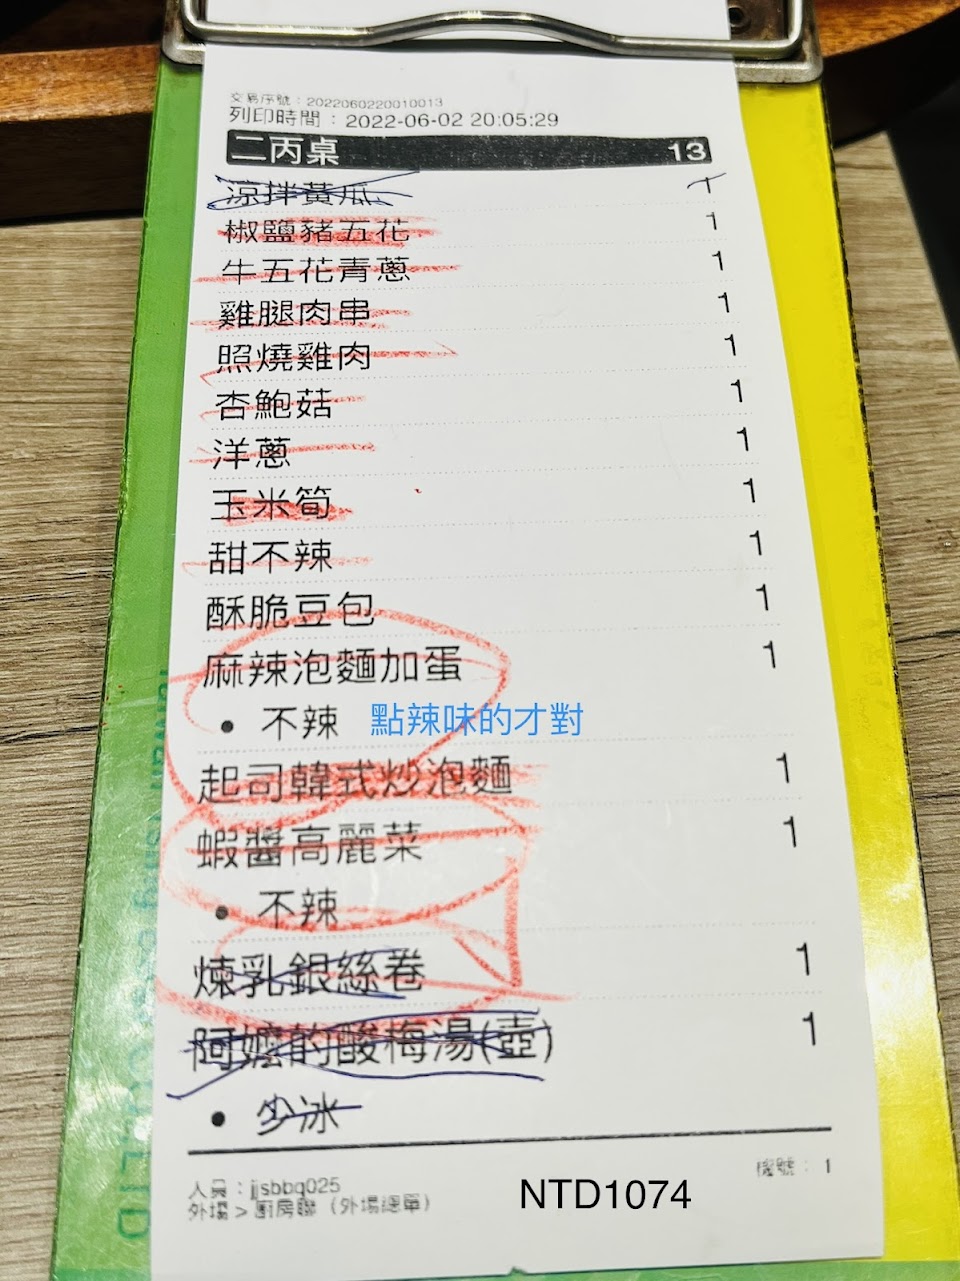 交易序號：2022060220010013
列印時間：2022-06-02 20:05:29
二丙桌 13
涼拌黃瓜 1
椒鹽豬五花 1
牛五花青蔥 1
雞腿肉串 1
照燒雞肉 1
杏鮑菇 1
洋蔥 1
玉米筍 1
甜不辣 1
酥脆豆包 1
麻辣泡麵加蛋 1
• 不辣 點辣味的才對
起司韓式炒泡麵 1
蝦醬高麗菜 1
• 不辣
煉乳銀絲卷 1
阿嬤的酸梅湯(壺) 1
• 少冰
機號：1
人員：jjsbbq025
外場>廚房聯（外場總單）
NTD1074